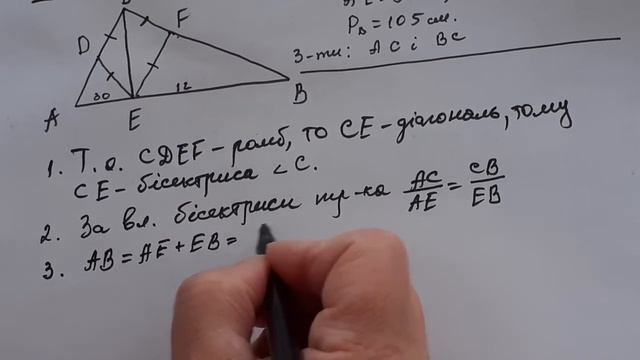 P_Δ = 105 см.
З-ти: AC і BC
D
F
30
12
A
E
B
1. Т.я. CDEF – ромб, то CE – діагональ, тому
CE – бісектриса ∠C.
2. За вл. бісектриси тр-ка AC/AE = CB/EB
3. AB = AE + EB =